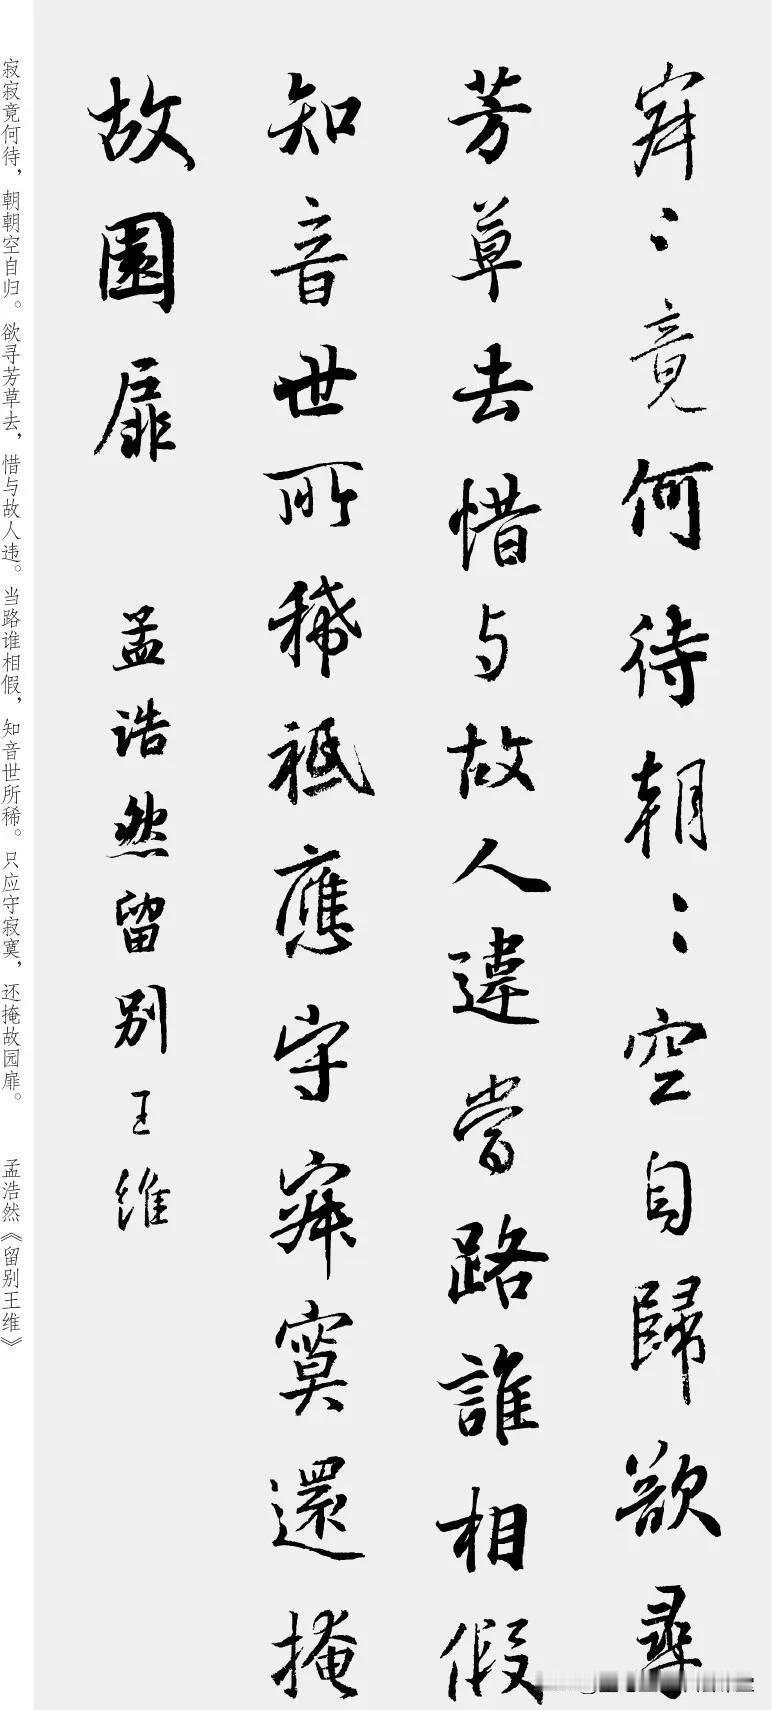 寂〻竟何待朝〻空自歸欲尋
芳草去惜与故人違當路誰相假
知音世所稀祗應守寂寞還掩
故園扉
孟浩然留别王维
寂寂竟何待，朝朝空自归。欲寻芳草去，惜与故人违。当路谁相假，知音世所稀。只应守寂寞，还掩故园扉。 孟浩然《留别王维》